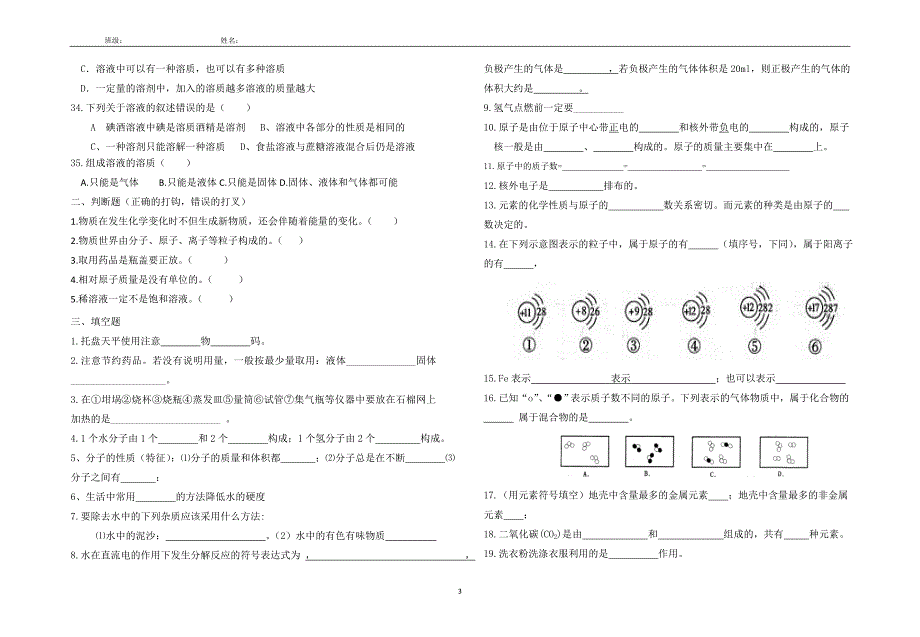 班级： 姓名：
C．溶液中可以有一种溶质，也可以有多种溶质
D．一定量的溶剂中，加入的溶质越多溶液的质量越大
34.下列关于溶液的叙述错误的是（ ）
A 碘酒溶液中碘是溶质酒精是溶剂 B、溶液中各部分的性质是相同的
C、一种溶剂只能溶解一种溶质 D、食盐溶液与蔗糖溶液混合后仍是溶液
35.组成溶液的溶质（ ）
A.只能是气体 B.只能是液体 C.只能是固体 D.固体、液体和气体都可能
二、判断题（正确的打钩，错误的打叉）
1.物质在发生化学变化时不但生成新物质，还会伴随着能量的变化。（ ）
2.物质世界由分子、原子、离子等粒子构成的。（ ）
3.取用药品是瓶盖要正放。（ ）
4.相对原子质量是没有单位的。（ ）
5.稀溶液一定不是饱和溶液。（ ）
三、填空题
1.托盘天平使用注意________物________码。
2.注意节约药品。若没有说明用量，一般按最少量取用：液体______________固体
____________________。
3.在①坩埚②烧杯③烧瓶④蒸发皿⑤量筒⑥试管⑦集气瓶等仪器中要放在石棉网上
加热的是______________________ 。
4.1 个水分子由 1 个________和 2 个________构成；1 个氢分子由 2 个_________构成。
5、分子的性质（特征）；⑴分子的质量和体积都_______；⑵分子总是在不断________⑶
分子之间有_______；
6、生活中常用________的方法降低水的硬度
7.要除去水中的下列杂质应该采用什么方法:
⑴水中的泥沙：____________________，（2）水中的有色有味物质__________
8.水在直流电的作用下发生分解反应的符号表达式为 ，______________________________，
负极产生的气体是_________，若负极产生的气体体积是 20ml，则正极产生的气体的
体积大约是_________。
9.氢气点燃前一定要__________
10.原子是由位于原子中心带正电的________和核外带负电的________构成的，原子
核一般是由________、________构成的。原子的质量主要集中在________上。
11.原子中的质子数=____________=______________=________________
12.核外电子是___________排布的。
13.元素的化学性质与原子的___________数关系密切。而元素的种类是由原子的___
数决定的。
14.在下列示意图表示的粒子中，属于原子的有______（填序号，下同），属于阳离子
的有______．
+11 28 +8 26 +9 28 +12 28 +12 282 +17 287
① ② ③ ④ ⑤ ⑥
15.Fe 表示________________表示________________；也可以表示______________
16.已知“o”、“●”表示质子数不同的原子。下列表示的气体物质中，属于化合物的
______ 属于混合物的是________。
A. B. C. D.
17.（用元素符号填空）地壳中含量最多的金属元素____；地壳中含量最多的非金属
元素____；
18.二氧化碳(CO₂)是由_____________和_____________组成的，共有_____种元素。
19.洗衣粉洗涤衣服利用的是__________作用。
3